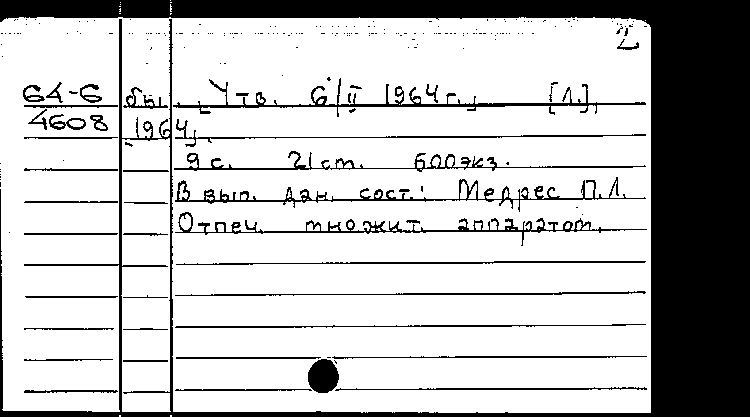 2
64-6 бы. „Утв. 6/II 1964 г.„ [Л.],
4608 „1964„.
9 с. 21 см. 600 экз.
В вып. дан. сост.: Медрес П.Л.
Отпеч. множит. аппаратом.